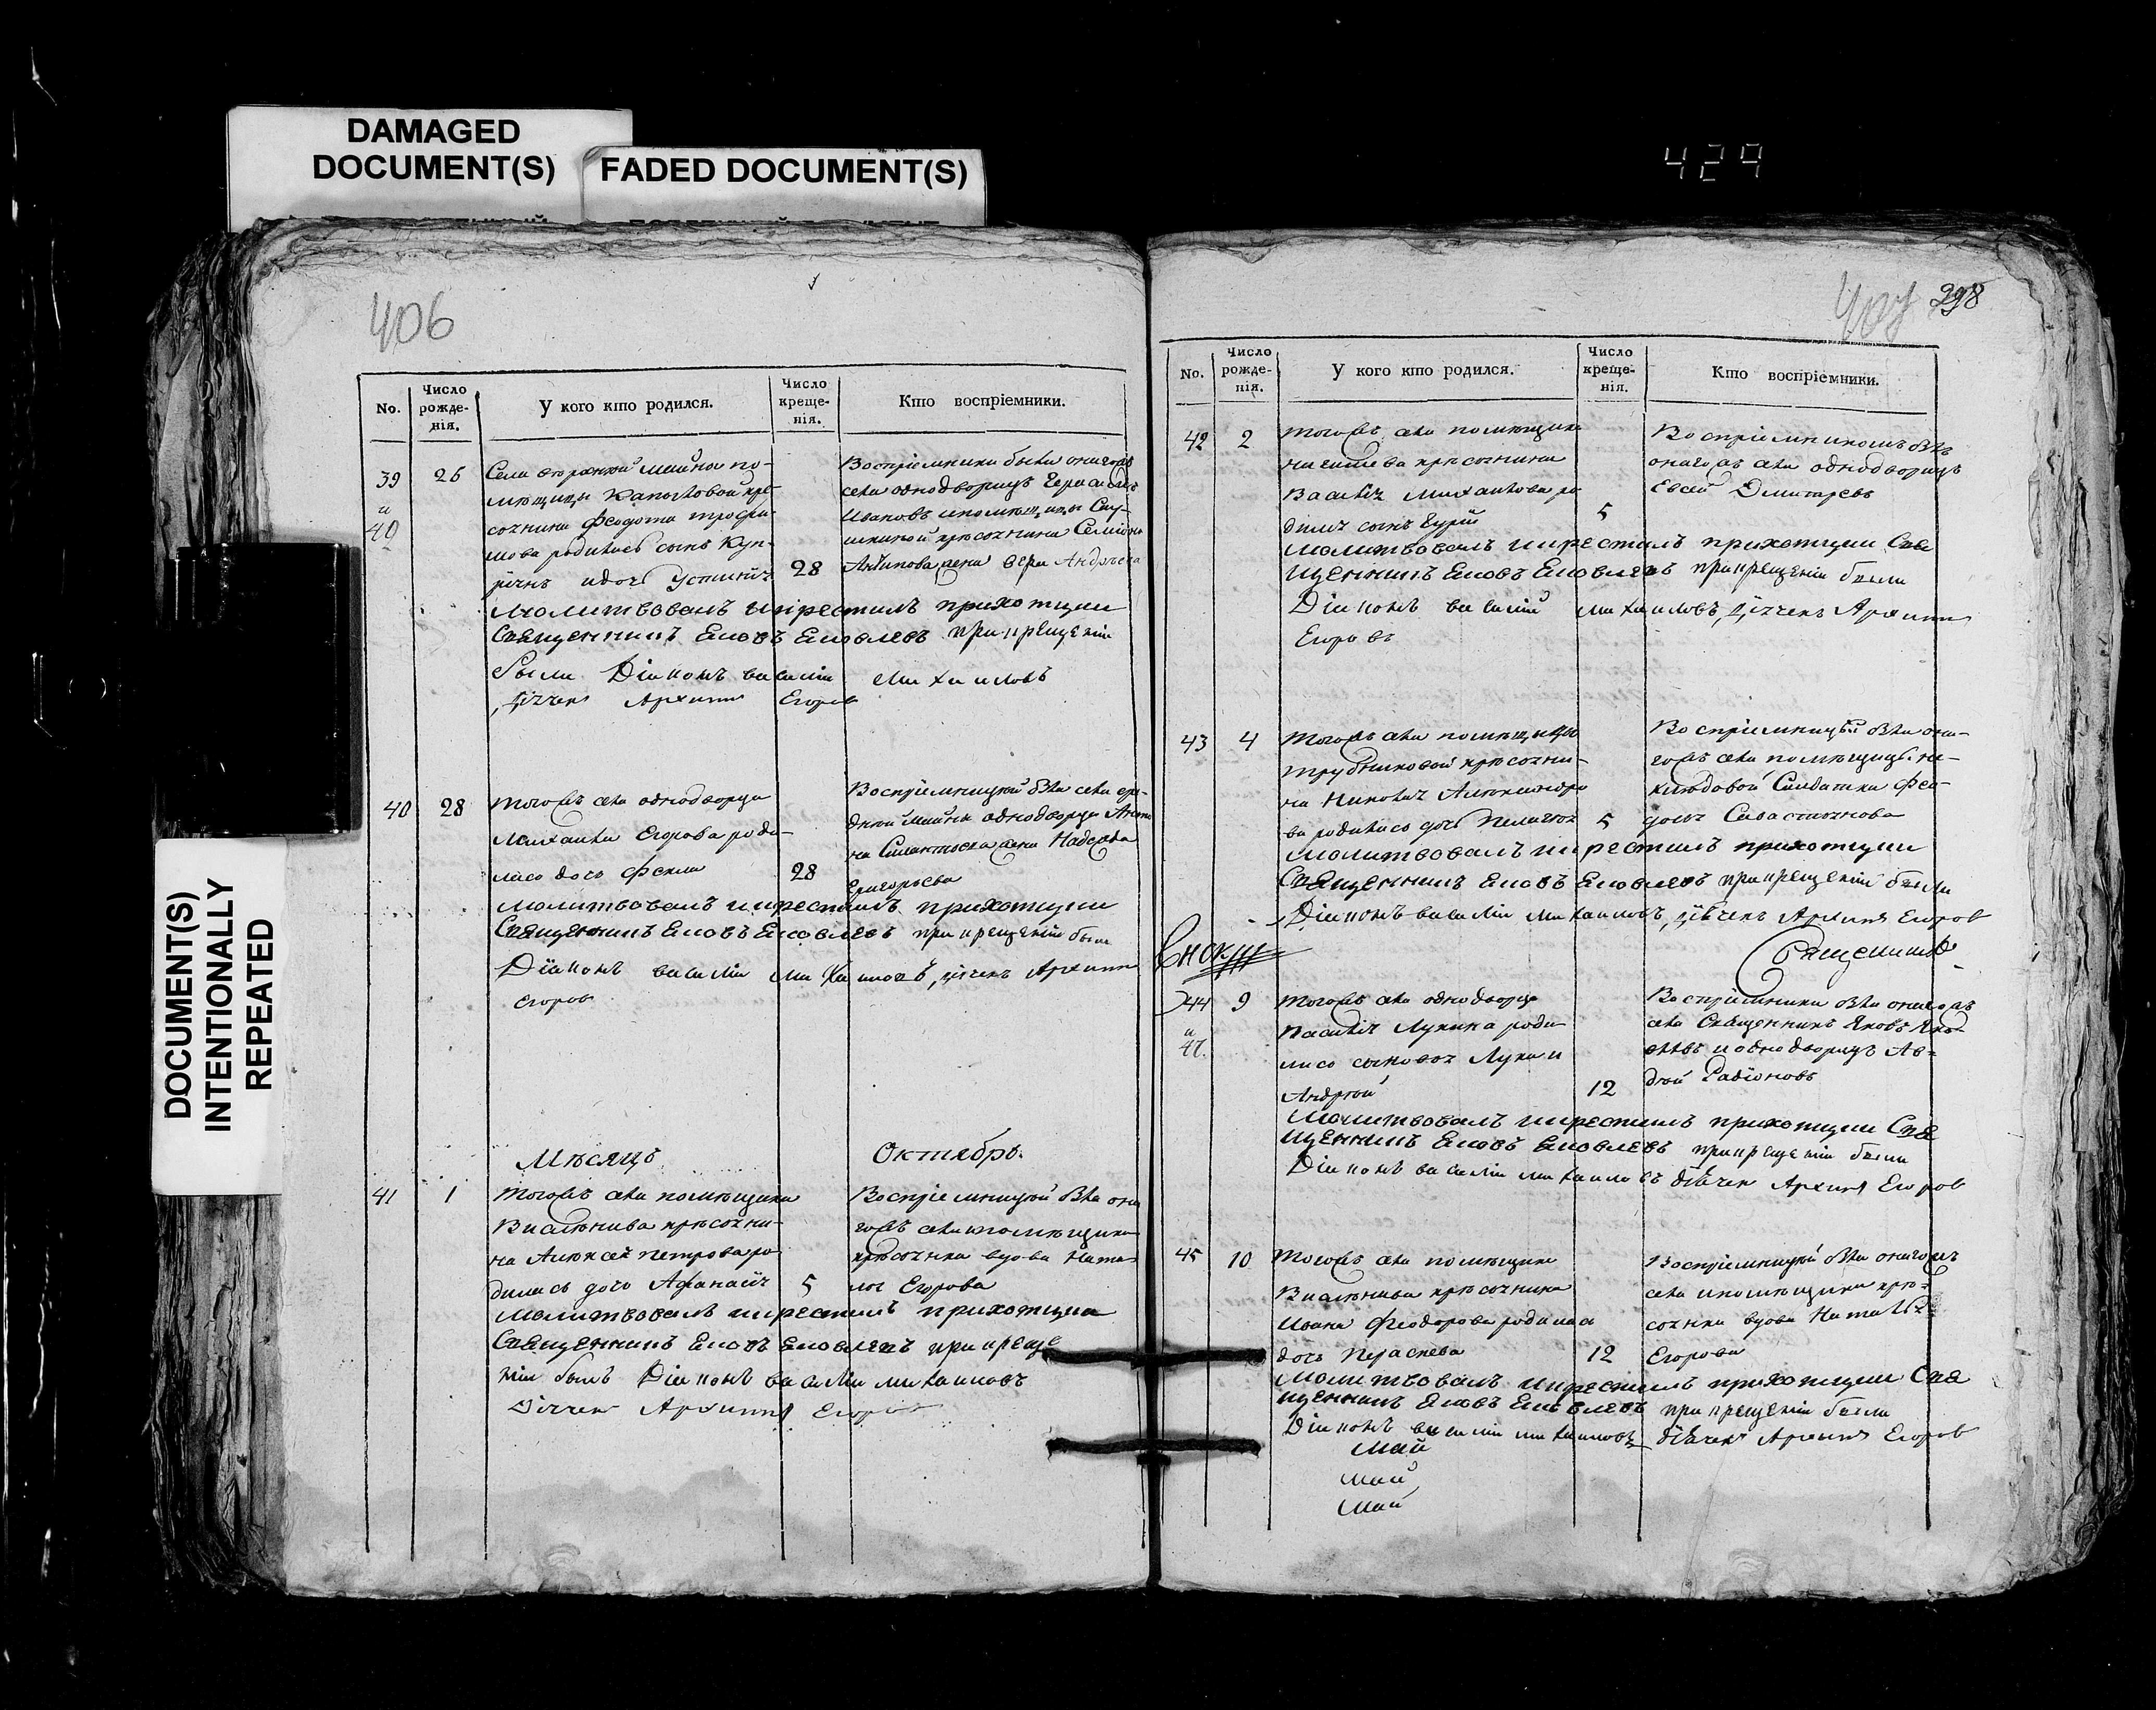 DAMAGED
DOCUMENT(S)
FADED DOCUMENT(S)
429
DOCUMENT(S)
INTENTIONALLY
REPEATED
406
No.
Число рожде-нія.
У кого кто родился.
Число креще-нія.
Кто воспріемники.
39 и 40
26
Села
по-
мещицы Капытовой кре-
сочнина Феодота Трофи-
мова родились сынъ Куп-
ріянъ и дочь Устинія
28
Воспріемники были онагожъ
села однодворецъ Герасимъ
Ивановъ и помещицы
Антипова жена Вера Андреева
молитвовалъ и крестилъ приходский
Священникъ Яковъ Яковлевъ при крещеніи
были Діаконъ василій михаиловъ
дячекъ Архипъ Егоров
40
28
Тогожъ села однодворца
Михаила Егорова роди-
лась дочь Фекла
28
Воспріемницей была села
однодворца
жена Надежда
Григорьева
молитвовалъ и крестилъ приходский
Священникъ Яковъ Яковлевъ при крещеніи были
Діаконъ василій михаиловъ, дячекъ Архипъ
Егоров
Месяцъ Октябрь.
41
1
Тогожъ села помещика
кресочни-
на Алексея Петрова ро-
дилась дочь Афанасія
5
Воспріемницей была она-
гожъ села помещика
кресочнка вдова Ната-
лья Егорова
молитвовалъ и крестилъ приходский
Священникъ Яковъ Яковлевъ при креще
ніи былъ Діаконъ василій михаиловъ
Дячекъ Архипъ Егоров
407
298
No.
Число рожде-нія.
У кого кто родился.
Число креще-нія.
Кто воспріемники.
42
2
Тогожъ села помещика
кресочнина
Василія Михаилова ро
дился сынъ Гурій
5
Воспріемникомъ былъ
онагожъ села однодворецъ
Евсей Дмитревъ
молитвовалъ и крестилъ приходский Свя
щенникъ Яковъ Яковлевъ при крещеніи были
Діаконъ василій михаиловъ, дячекъ Архипъ
Егоровъ
43
4
Тогожъ села помещицы
Трубниковой кресочни-
на
Александро
ва родилась дочь Пелагея
5
Воспріемницей была она-
гожъ села помещицы
Салдатка Фео-
досья
молитвовалъ и крестилъ приходский
Священникъ Яковъ Яковлевъ при крещеніи были
Діаконъ василій михаиловъ, дячекъ Архипъ Егоров
Священникъ
44
9
Тогожъ села однодворца
Василія Лукина роди
лись сыновья Лука и
Андрей
12
Воспріемники были онагожъ
села Священникъ Яковъ Яко-
влевъ и однодворецъ Ав-
дей Радіоновъ
молитвовалъ и крестилъ приходский Свя
щенникъ Яковъ Яковлевъ при крещеніи были
Діаконъ василій михаиловъ дячекъ Архипъ Егоров
45
10
Тогожъ села помещика
кресочнина
Ивана Феодорова родилась
дочь Параскева
12
Воспріемницей была онагожъ
села помещика кре-
сочнка вдова Наталья
Егорова
молитвовалъ и крестилъ приходский Свя
щенникъ Яковъ Яковлевъ при крещеніи были
Діаконъ василій михаиловъ дячекъ Архипъ Егоров
май
май
май